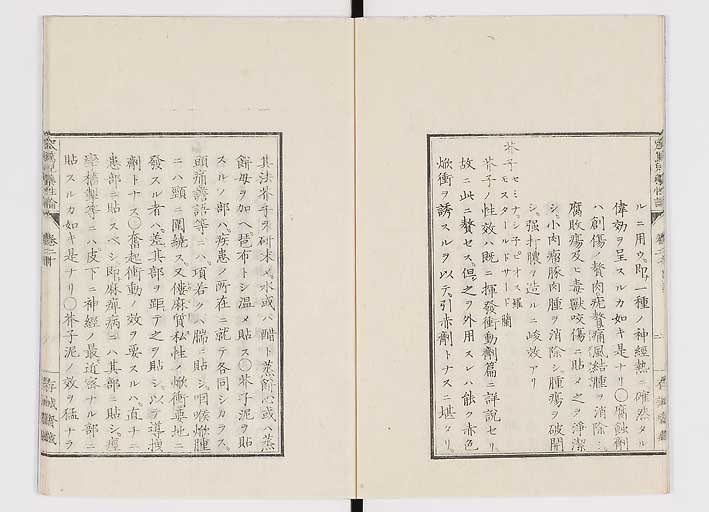 ルニ用ウ。即一種ノ神經熱ニ確然タル
偉効ヲ呈スルカ如キ是ナリ〇腐蝕劑
ハ創傷ノ贅肉疣贅痛風結腫ヲ消除シ、
腐敗瘍及ヒ毒獸咬傷ニ貼メ之ヲ淨潔
シ、小肉瘤豚肉腫ヲ消除シ、腫瘍ヲ破開
シ、强打膿ヲ造ルニ峻效アリ
芥子 セミナ、シ子ピオス 羅
モスタールドサード 蘭
芥子ノ性效ハ既ニ揮發衝動劑篇ニ詳説セリ。
故ニ此ニ贅セス。但之ヲ外用スレハ能ク赤色
焮衝ヲ誘スルヲ以テ、引赤劑トナスニ堪タリ。
其法芥子ヲ研末メ、水或ハ醋ト蒸餅心或ハ蒸
餅母ヲ加ヘ琶布トシ温メ貼ス〇芥子泥ヲ貼
スルノ部ハ、疾患ノ所在ニ就テ各同シカラス。
頭痛譫語等ニハ、項若クハ腨ニ貼シ、咽喉焮腫
ニハ頸ニ圍繞ス。又僂麻質私性ノ焮衝要地ニ
發スル者ハ、差其部ヲ距テ之ヲ貼シ、以テ導洩
劑トナス〇奮起衝動ノ效ヲ要スルハ、直ナニ
患部ニ貼スベシ。即麻痺病ニハ其部ニ貼シ、痙
攣搐掣等ニハ、皮下ニ神經ノ最近密ナル部ニ
貼スルカ如キ是ナリ〇芥子泥ノ效ヲ猛ナラ